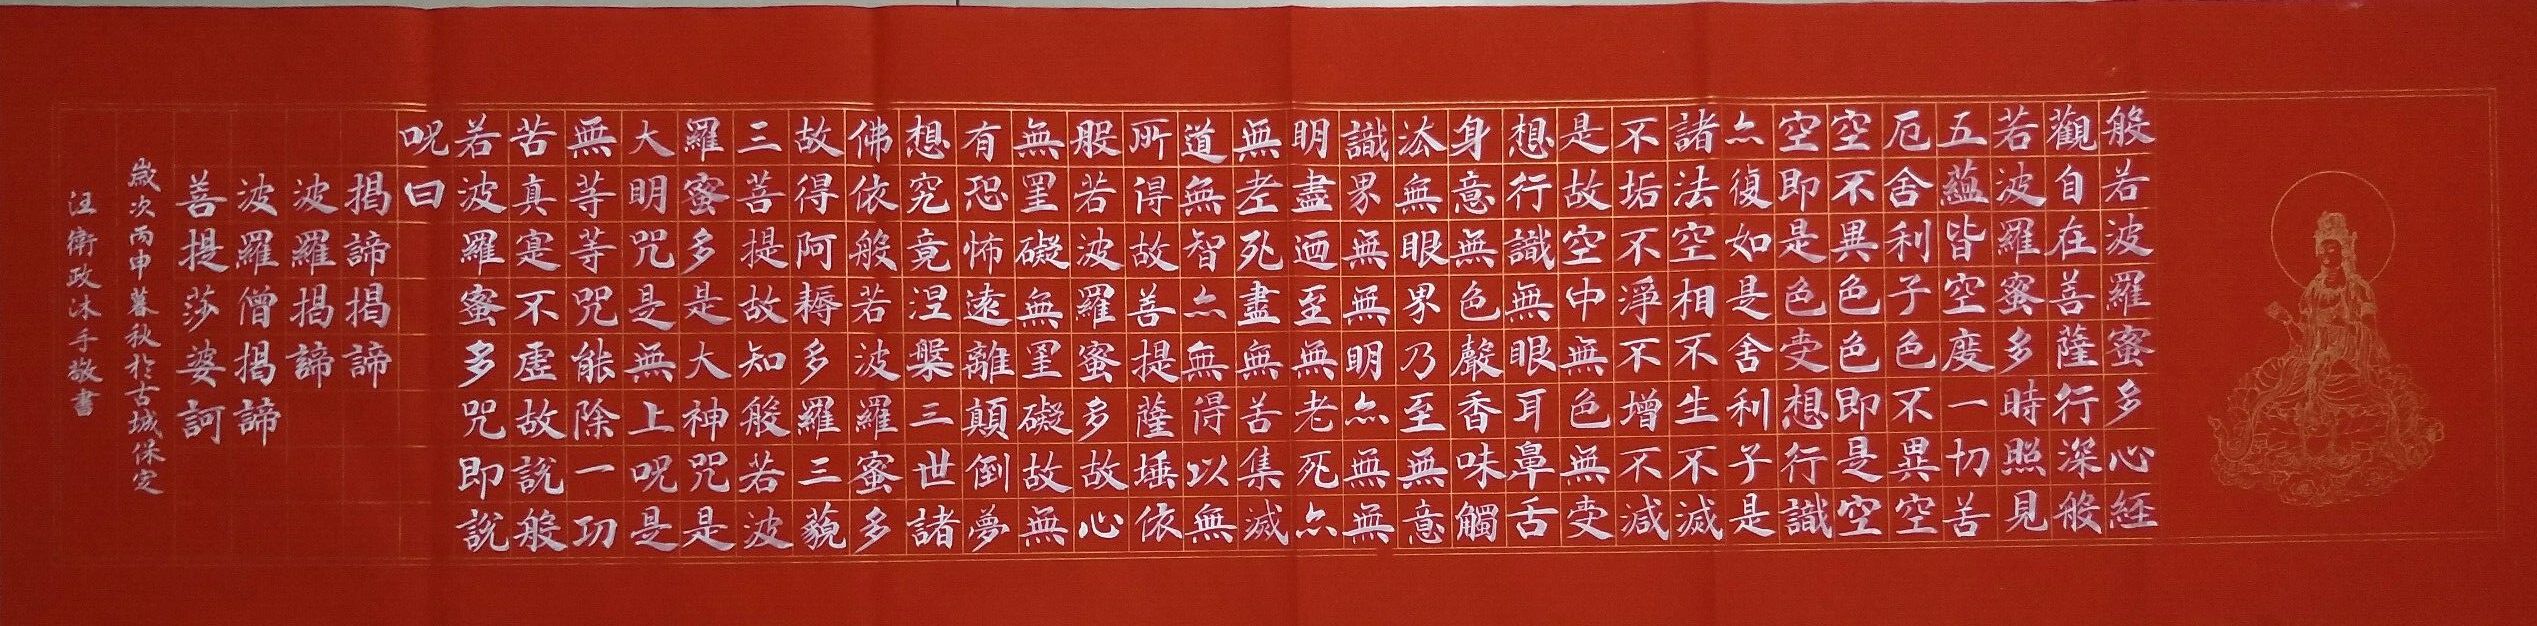 般若波羅蜜多心経
觀自在菩薩行深般
若波羅蜜多時照見
五蘊皆空度一切苦
厄舍利子色不異空
空不異色色即是空
空即是色受想行識
亦復如是舍利子是
諸法空相不生不滅
不垢不淨不增不減
是故空中無色無受
想行識無眼耳鼻舌
身意無色聲香味觸
法無眼界乃至無意
識界無無明亦無無
明盡迺至無老死亦
無老死盡無苦集滅
道無智亦無得以無
所得故菩提薩埵依
般若波羅蜜多故心
無罣礙無罣礙故無
有恐怖遠離顛倒夢
想究竟涅槃三世諸
佛依般若波羅蜜多
故得阿耨多羅三藐
三菩提故知般若波
羅蜜多是大神咒是
大明咒是無上呪是
無等等咒能除一切
苦真寔不虛故說般
若波羅蜜多咒即說
呪曰
揭諦揭諦
波羅揭諦
波羅僧揭諦
菩提莎婆訶
歲次丙申暮秋於古城保定
汪衛政沐手敬書